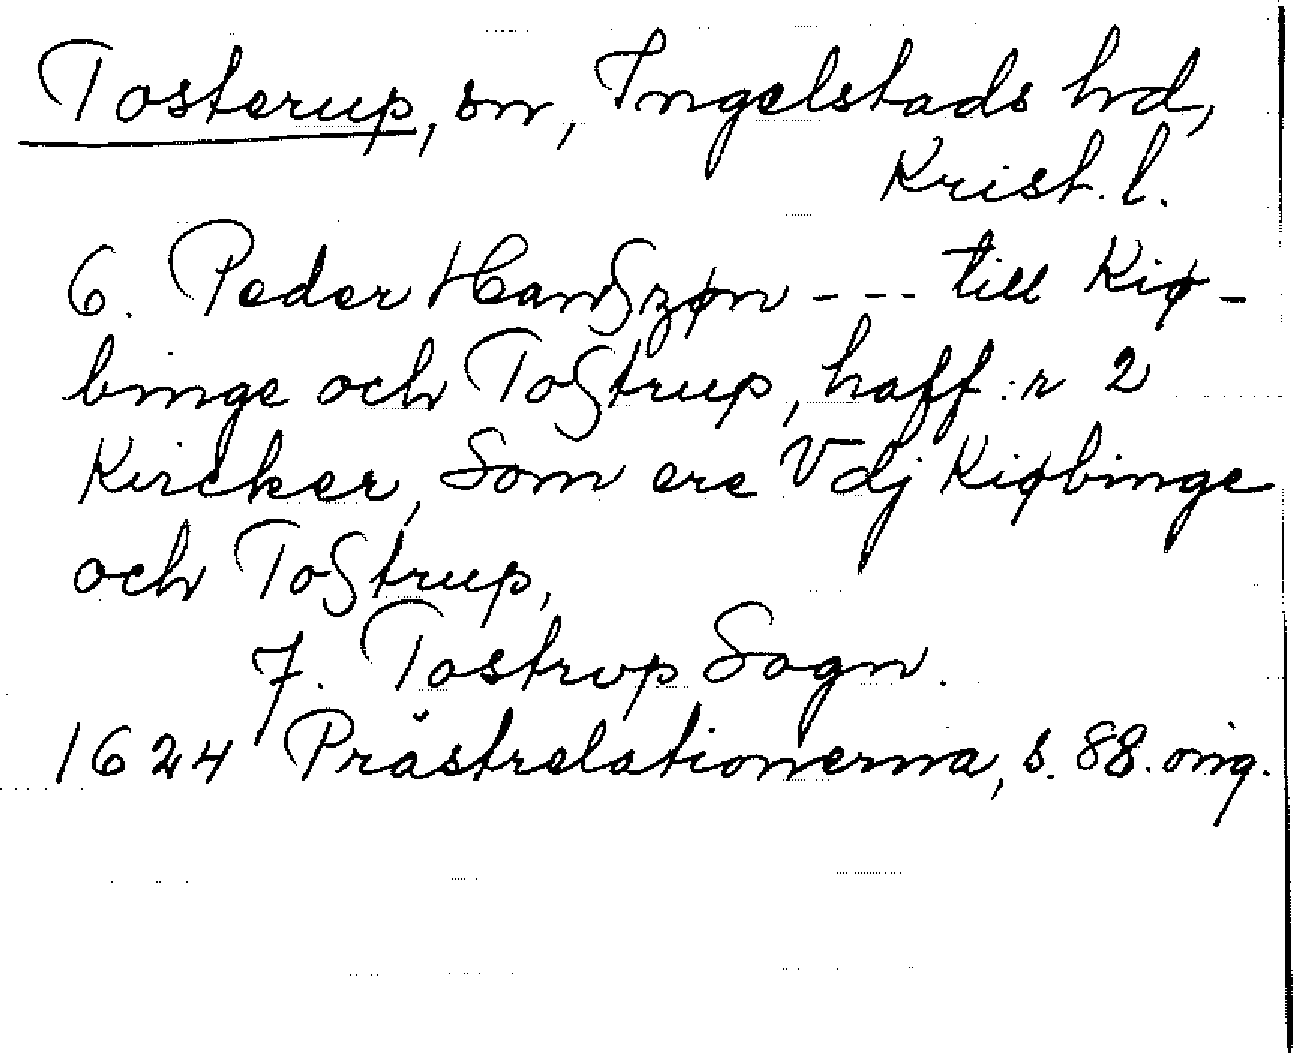 Tosterup, sn, Ingelstads hd,
Krist. l.
6. Peder Hanßzøn --- till Kiø-
binge och Toßtrup, haff:r 2
Kircker, Som ere Vdj Kiøbinge
och Toßtrup,
7. Tostrvp Sogn.
1624 Prästrelationerna, s. 88. orig.